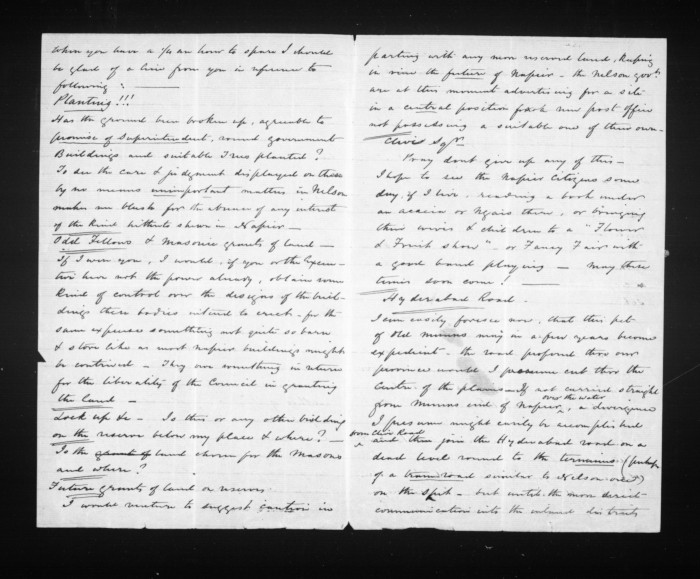 When you have a ½ an hour to spare I should
be glad of a line from you in reference to
following : —
Planting !!!
Has the ground been broken up, agreeable to
promise of Superintendent, round government
Buildings and suitable Trees planted?
To see the care & judgment displayed on these
by no means unimportant matters in Nelson
makes me blush for the absence of any interest
of the kind hitherto shewn in Napier —
Odd Fellows & Masonic grants of land —
If I were you, I would, if you or the Execu-
tive have not the power already, obtain some
kind of control over the designs of the buil-
dings these bodies intend to erect. for the
same expenses something not quite so barn
& store like as most Napier buildings might
be contrived — They owe something in return
for the liberality of the Council in granting
the land —
Lock up &c — Is this or any other building
on the reserve below my place & where? —
Is the land chosen for the Masons
and where?
Future grants of land or reserves
I would venture to suggest caution in
parting with any more reserved land, keeping
in view the future of Napier — the Nelson govt.
are at this moment advertising for a site
in a central position for a new post office
not possessing a suitable one of their own —
Clive Sqre.
Pray dont give up any of this —
I hope to see the Napier Citizens some
day, if I live, reading a book under
an acacia or Ngaio there, or bringing
their wives & children to a "Flower
& Fruit show" — or Fancy Fair with
a good band playing — May these
times soon come! —
Hyderabad Road —
I can easily foresee now, that this pet
of Old mines may in a few years become
expedient — the road proposed thro' our
province would I presume cut thro' the
centre of the plains — If not carried straight
over the water
from end of Napier, a divergence
I presume might easily be accomplished
from Clive Road
and then join the Hyderabad road on a
dead level round to the terminus (perhaps
of a tram road similar to Nelson one?)
on the Spit — but until the more direct
communication with the inland districts